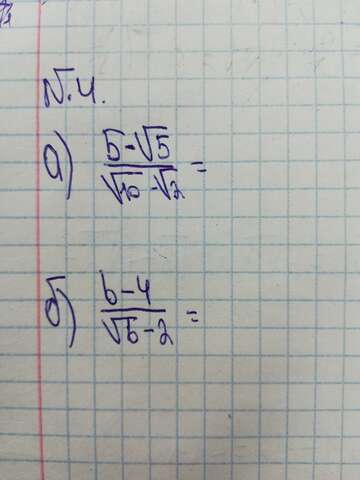 N.4.
а) 5-√5 / √10 -√2 =
б) b-4 / √b-2 =